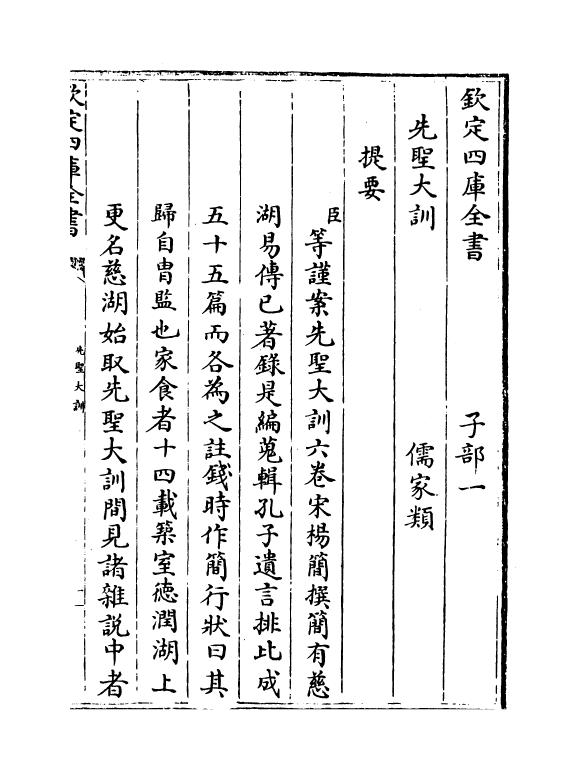 欽定四庫全書　　子部一
先聖大訓　　儒家類
提要
臣等謹案先聖大訓六卷宋楊簡撰簡有慈
湖易傳已著錄是編蒐輯孔子遺言排比成
五十五篇而各為之註錢時作簡行狀曰其
歸自胄監也家食者十四載築室徳潤湖上
更名慈湖始取先聖大訓間見諸雜説中者
欽定四庫全書
先聖大訓